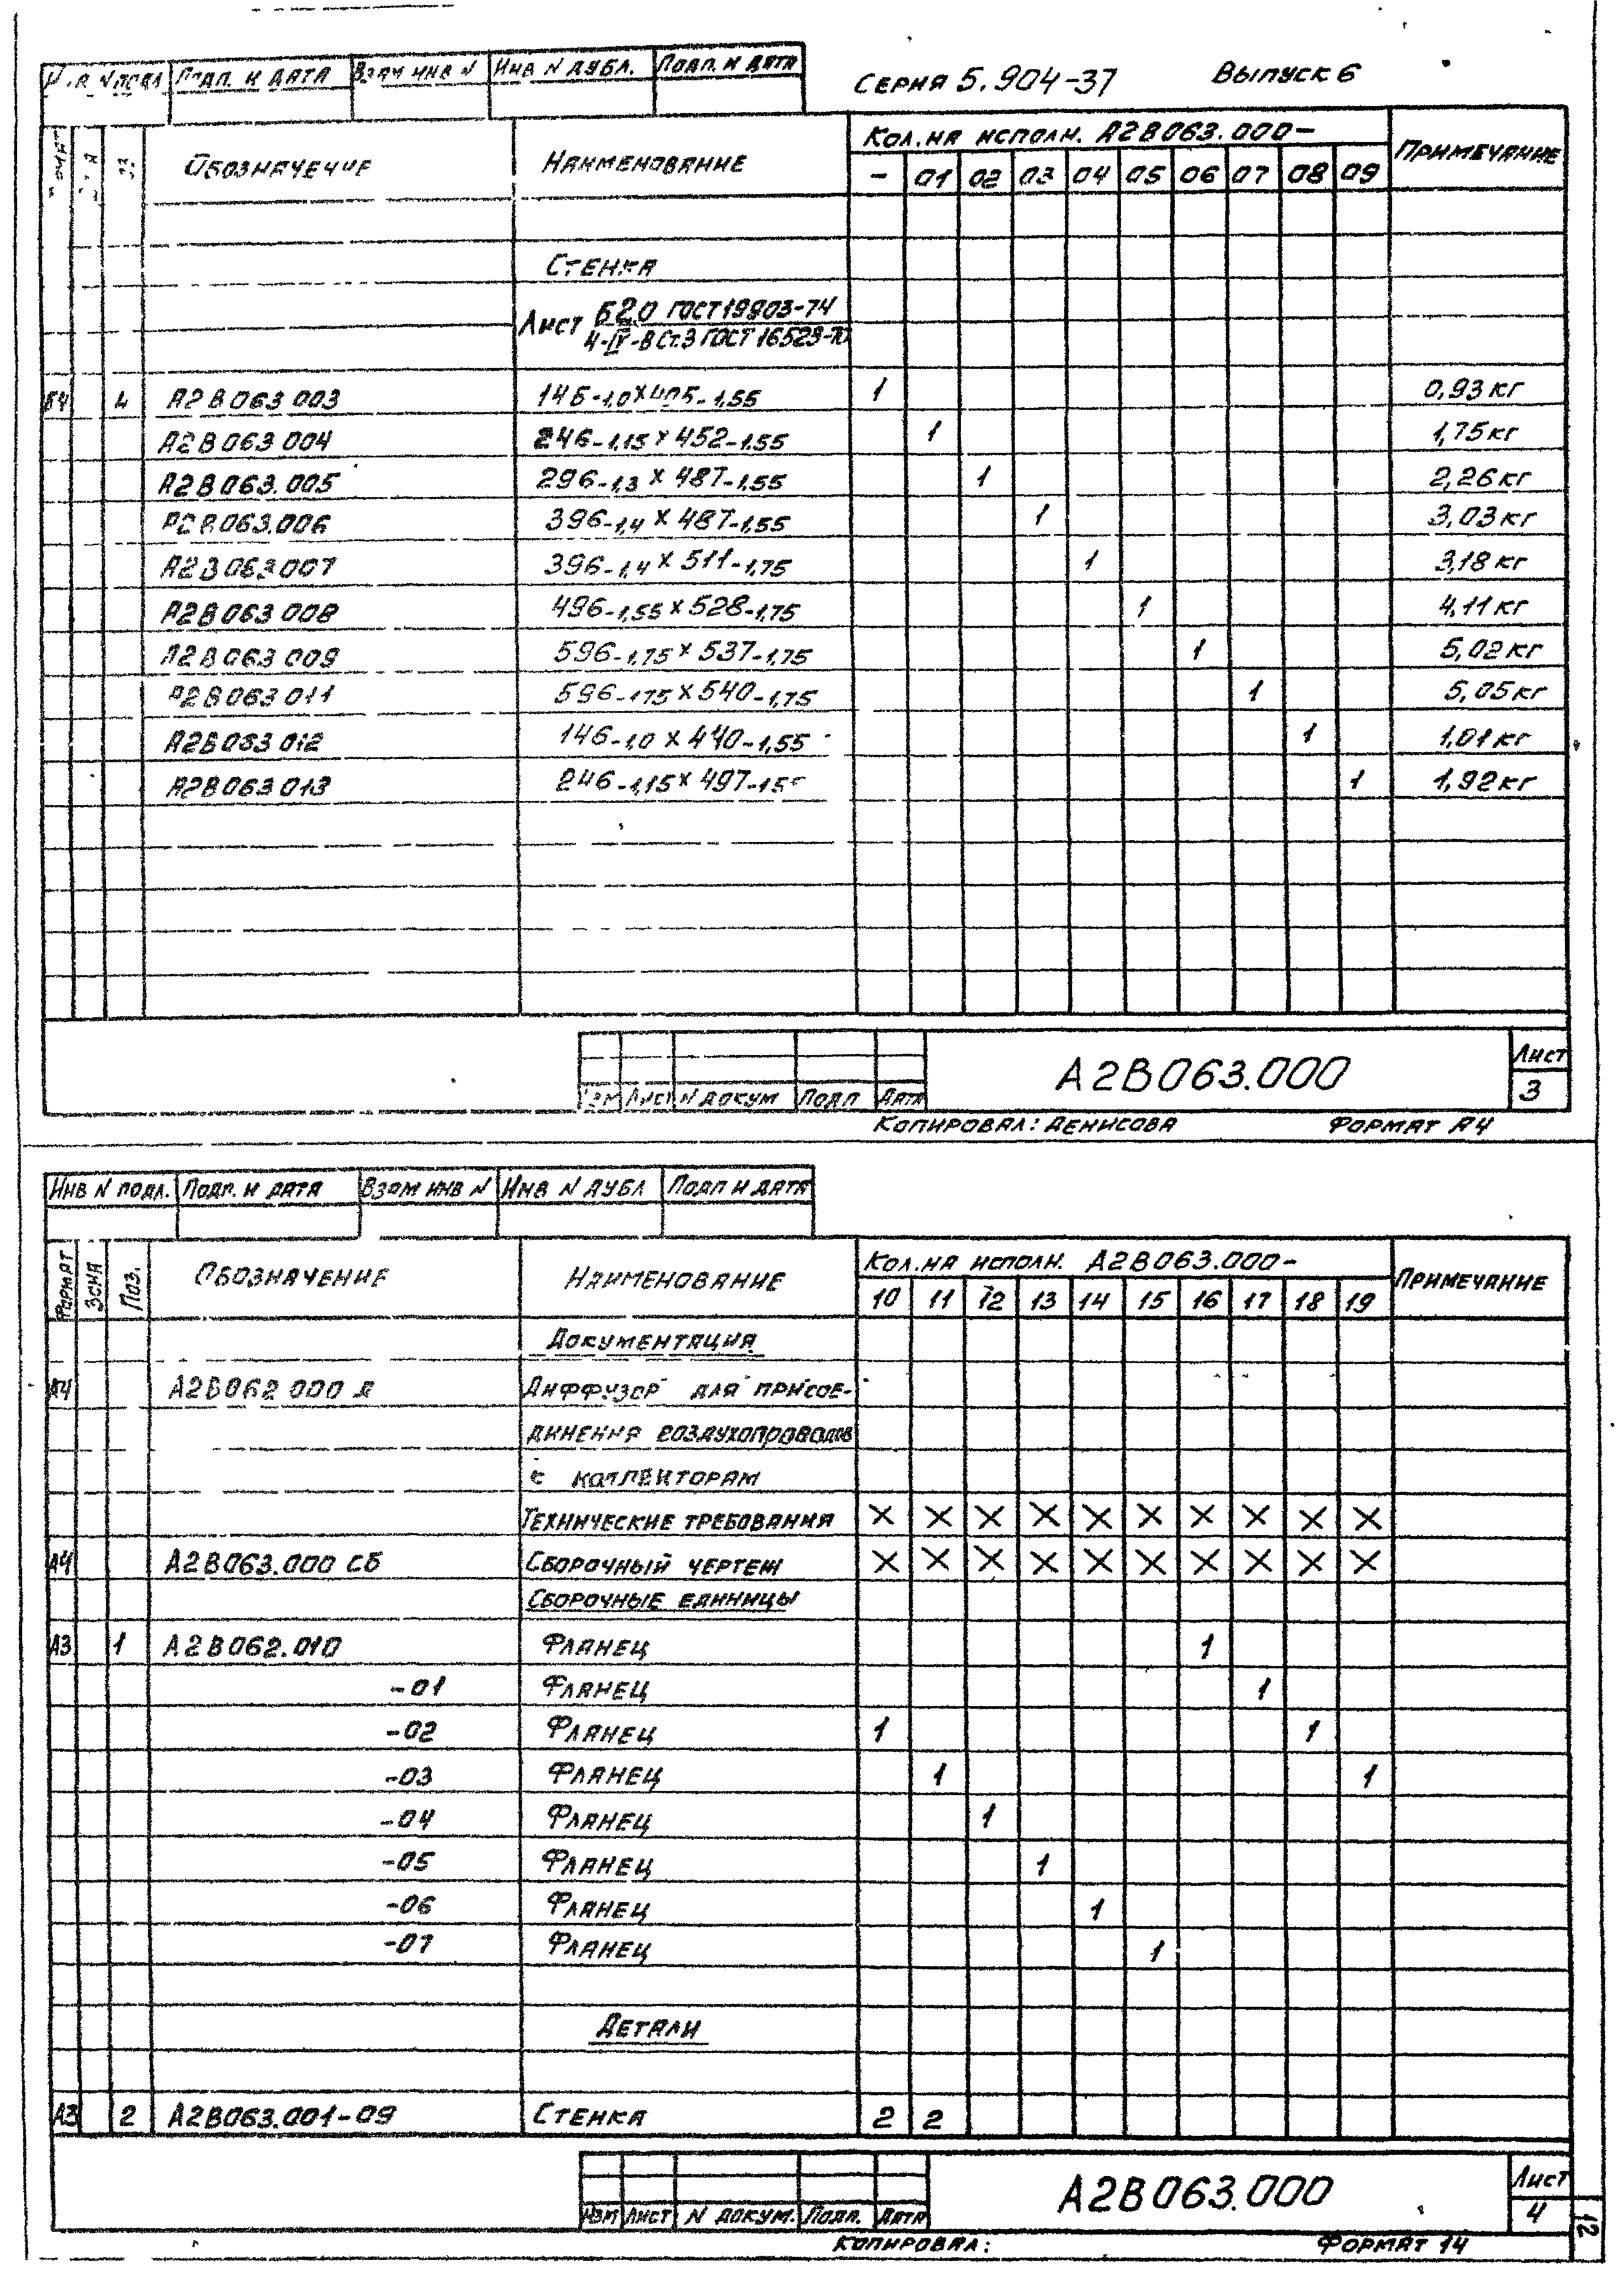 Серия 5.904-37 Выпуск 6
Подп. и дата Взам инв N Инв N дубл. Подп. и дата
Обозначение Наименование Кол. на исполн. А2В063.000- Примечание
- 01 02 03 04 05 06 07 08 09
Стенка
Лист Б2.0 ГОСТ 19903-74
4-IV-В Ст.3 ГОСТ 16523-70
Б4 4 А2В063 003 146-1,0 х 405-1,55 1 0,93 кг
А2В063 004 246-1,15 х 452-1,55 1 1,75 кг
А2В063.005 296-1,3 х 487-1,55 1 2,26 кг
А2В063.006 396-1,4 х 487-1,55 1 3,03 кг
А2В063007 396-1,4 х 511-1,75 1 3,18 кг
А2В063 008 496-1,55 х 528-1,75 1 4,11 кг
А2В063 009 596-1,75 х 537-1,75 1 5,02 кг
А2В063 011 596-1,75 х 540-1,75 1 5,05 кг
А2В063 012 146-1,0 х 440-1,55 1 1,01 кг
А2В063 013 246-1,15 х 497-1,55 1 1,92 кг
Изм Лист N докум Подп Дата А2В063.000 Лист 3
Копировал: Денисова Формат А4
Инв N подл. Подп. и дата Взам инв N Инв N дубл Подп и дата
Формат Зона Поз. Обозначение Наименование Кол. на исполн. А2В063.000- Примечание
10 11 12 13 14 15 16 17 18 19
Документация
А4 А2В062 000 Д Диффузор для присое-
динения воздухопроводов
к коллекторам
Технические требования X X X X X X X X X X
А4 А2В063.000 СБ Сборочный чертеж X X X X X X X X X X
Сборочные единицы
А3 1 А2В062.010 Фланец 1
-01 Фланец 1
-02 Фланец 1 1
-03 Фланец 1 1
-04 Фланец 1
-05 Фланец 1
-06 Фланец 1
-07 Фланец 1
Детали
А3 2 А2В063.001-09 Стенка 2 2
Изм Лист N докум. Подп. Дата А2В063.000 Лист 4
Копировал: Формат 14
12